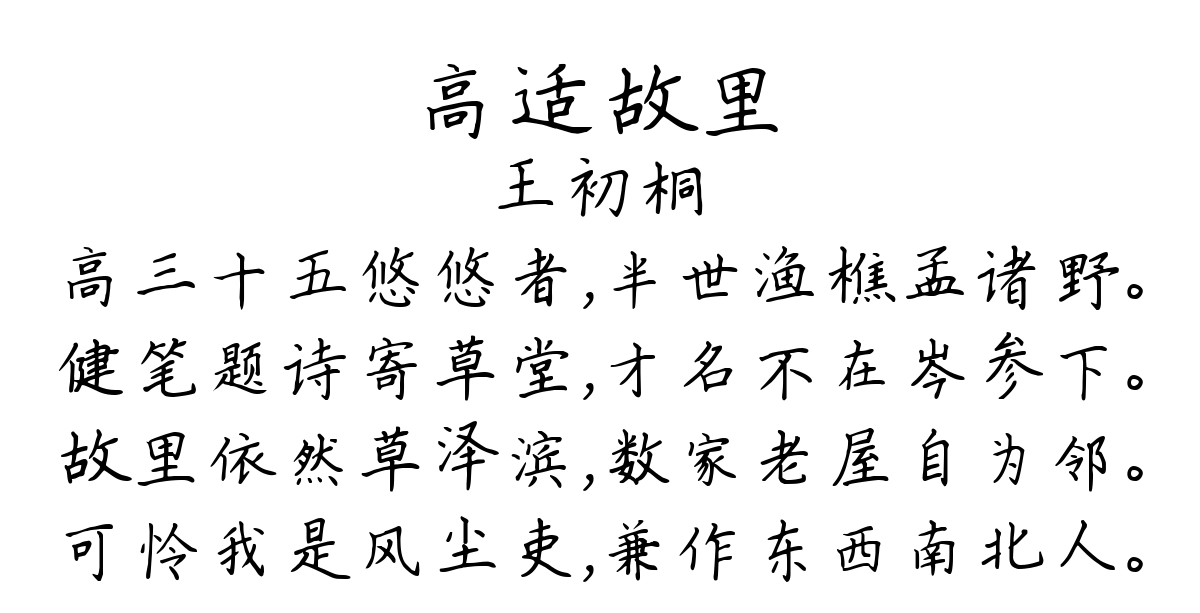 高适故里
王初桐
高三十五悠悠者,半世渔樵孟诸野。
健笔题诗寄草堂,才名不在岑参下。
故里依然草泽滨,数家老屋自为邻。
可怜我是风尘吏,兼作东西南北人。